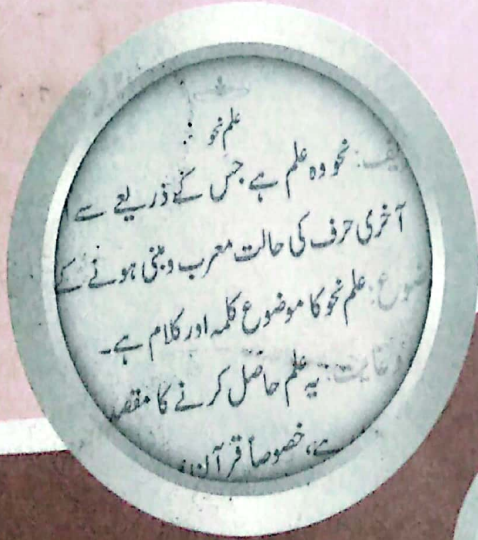 علم نحو
یف: نحو وہ علم ہے جس کے ذریعے سے
آخری حرف کی حالت معرب و مبنی ہونے کے
ضوع: علم نحو کا موضوع کلمہ اور کلام ہے۔
غایت: یہ علم حاصل کرنے کا مقصد
ہے، خصوصاً قرآن